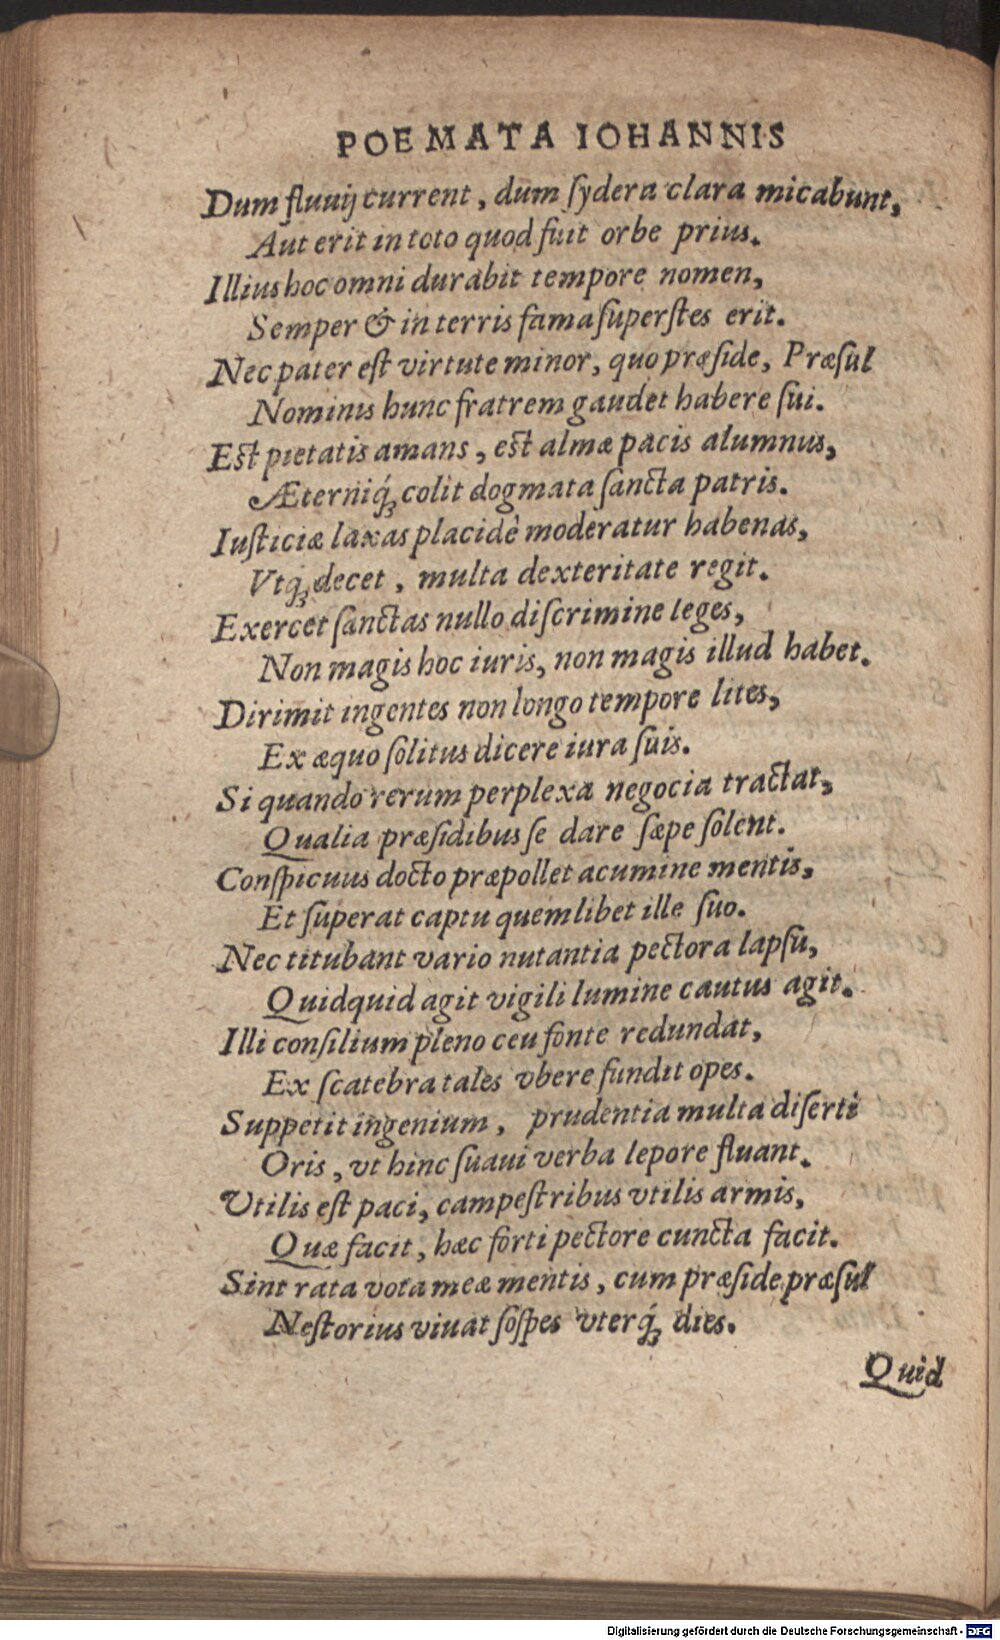 POEMATA IOHANNIS
Dum fluuij current, dum ſydera clara micabunt,
Aut erit in toto quod fuit orbe prius.
Illius hoc omni durabit tempore nomen,
Semper & in terris fama ſuperſtes erit.
Nec pater eſt virtute minor, quo præſide, Præſul
Nominis hunc fratrem gaudet habere ſui.
Eſt pietatis amans, eſt almæ pacis alumnus,
Æterniq́ꝫ colit dogmata ſancta patris.
Iuſticiæ laxas placidè moderatur habenas,
Vtq́ꝫ decet, multa dexteritate regit.
Exercet ſanctas nullo diſcrimine leges,
Non magis hoc iuris, non magis illud habet.
Dirimit ingentes non longo tempore lites,
Ex æquo ſolitus dicere iura ſuis.
Si quando rerum perplexa negocia tractat,
Qualia præſidibus ſe dare ſæpe ſolent.
Conſpicuus docto præpollet acumine mentis,
Et ſuperat captu quemlibet ille ſuo.
Nec titubant vario nutantia pectora lapſu,
Quidquid agit vigili lumine cautus agit.
Illi conſilium pleno ceu fonte redundat,
Ex ſcatebra tales vbere fundit opes.
Suppetit ingenium, prudentia multa diſerti
Oris, vt hinc ſuaui verba lepore fluant.
Utilis eſt paci, campeſtribus vtilis armis,
Quæ facit, hæc forti pectore cuncta facit.
Sint rata vota meæ mentis, cum præſide præſul
Neſtorius viuat ſoſpes vterq́ꝫ dies.
Quid
Digitalisierung gefördert durch die Deutsche Forschungsgemeinschaft - DFG